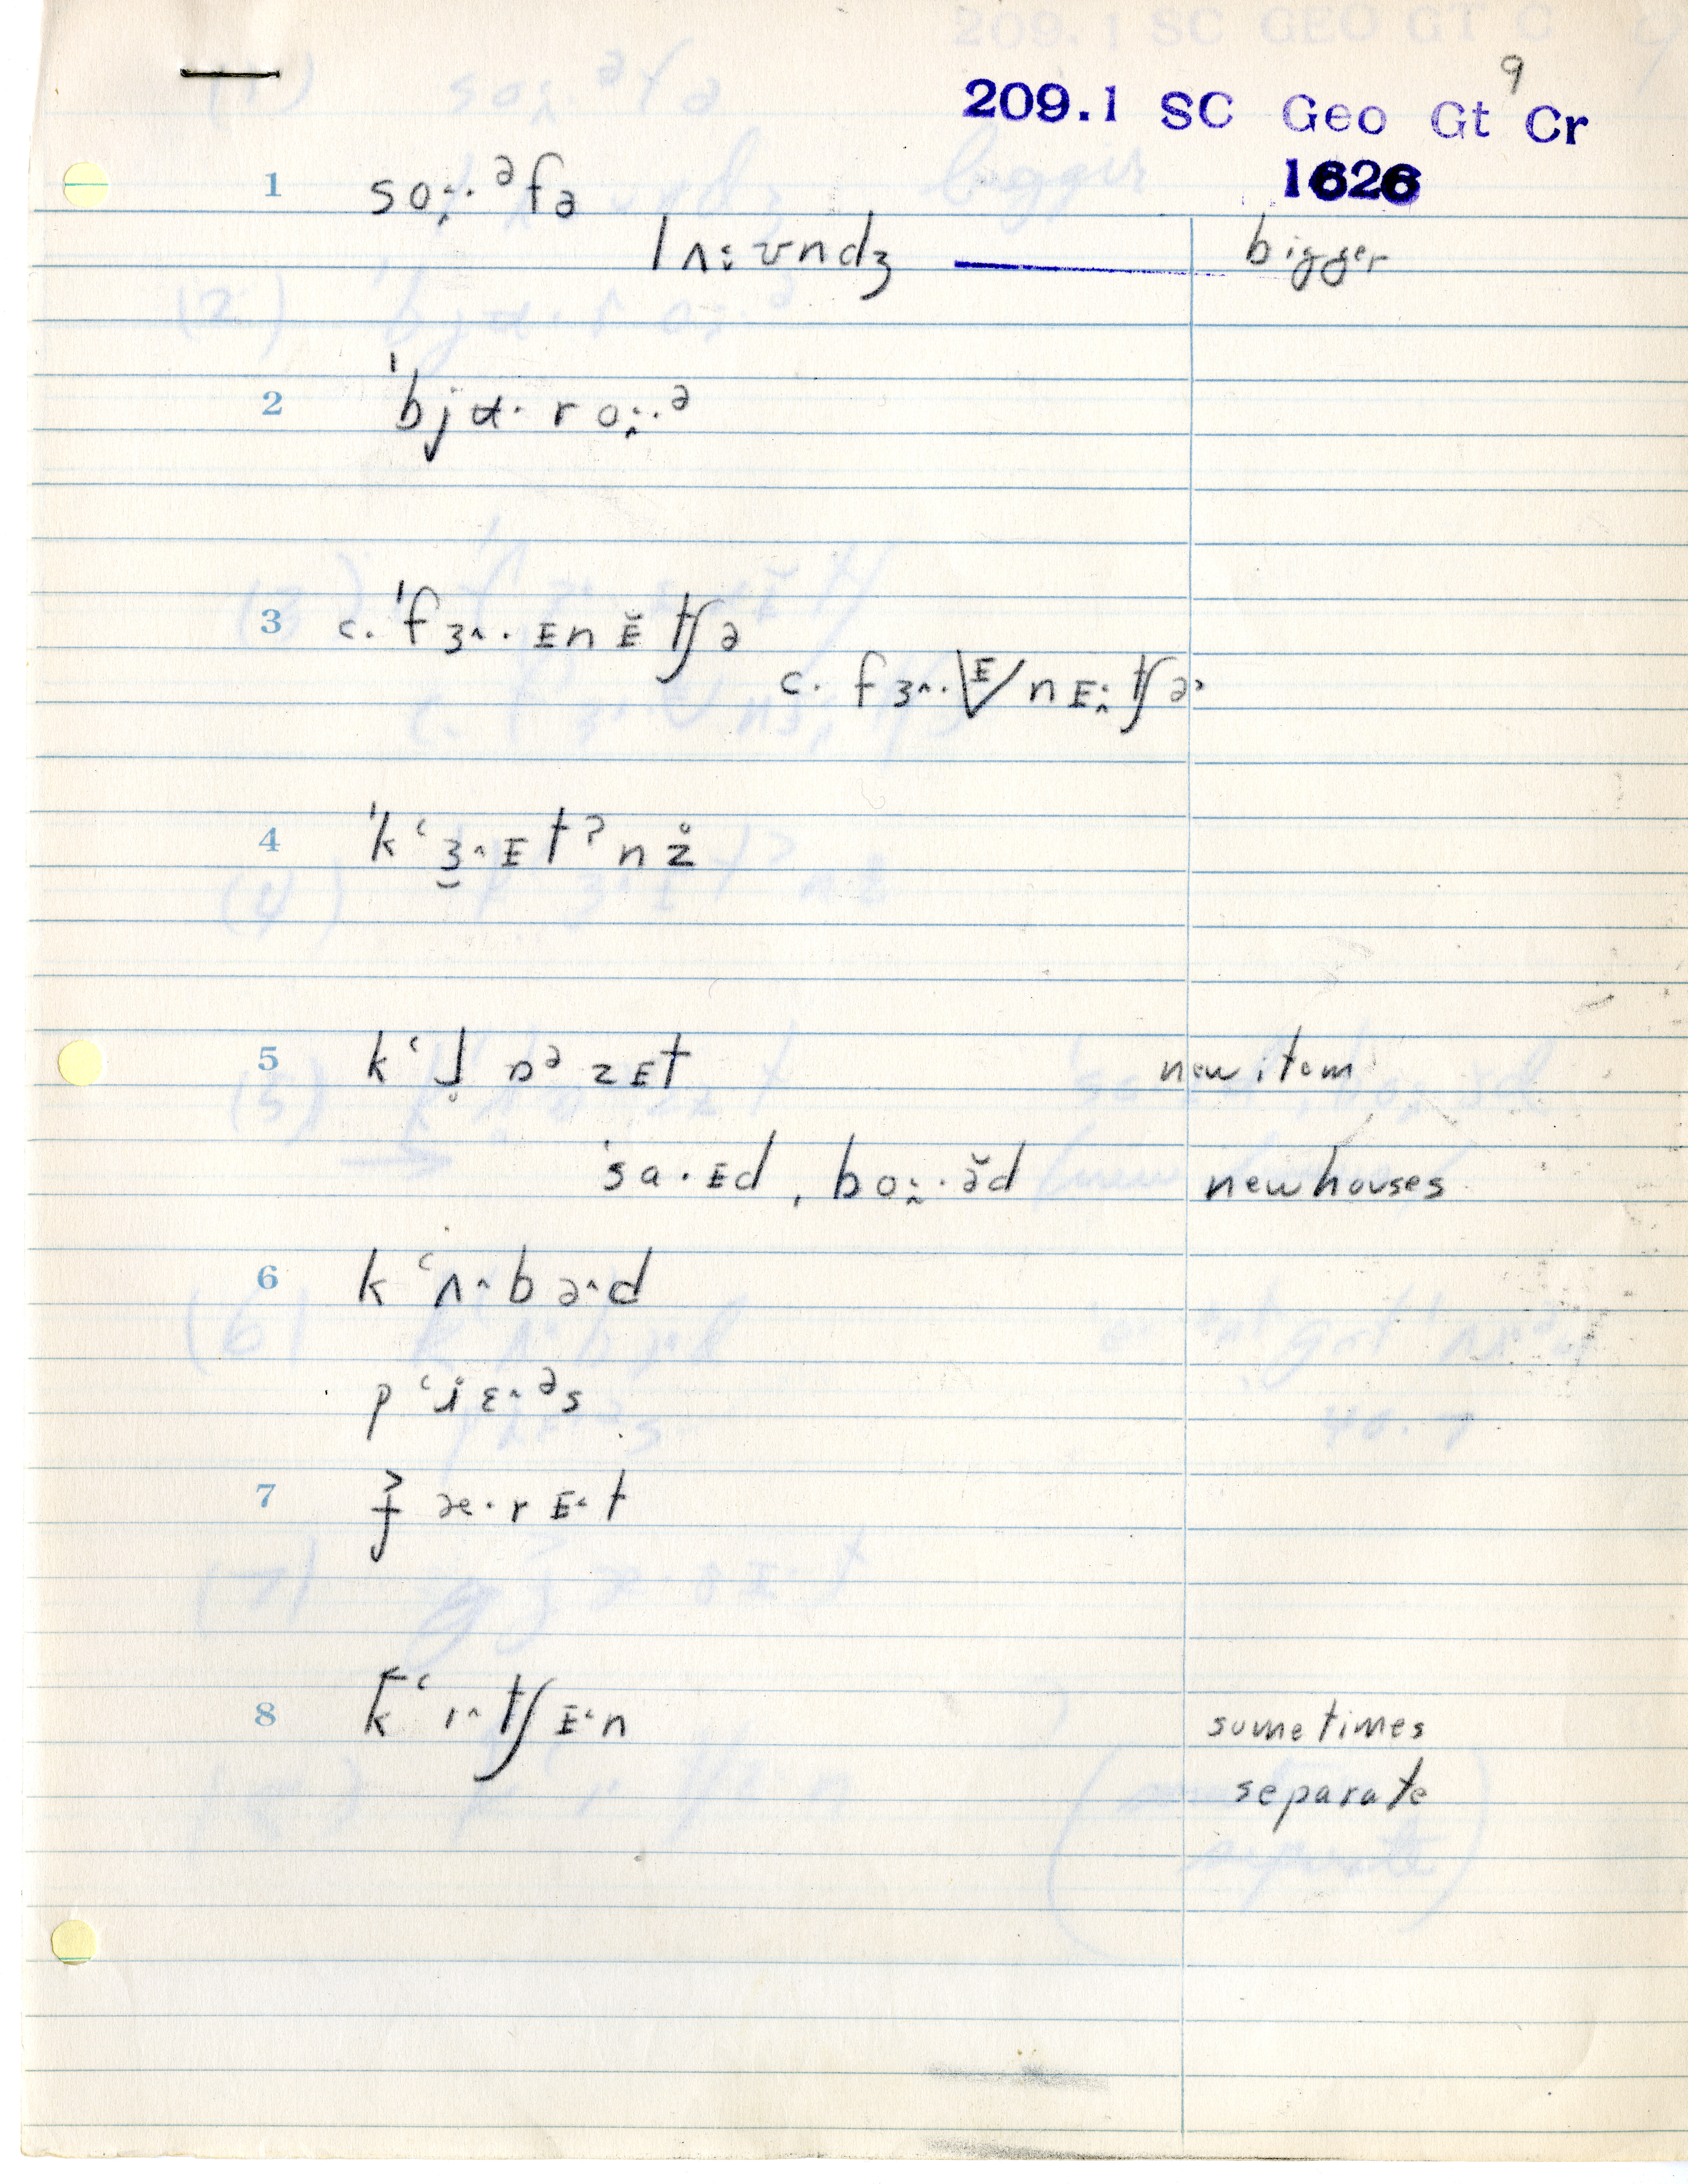 9
209.1 SC Geo Gt Cr
1626
1 so:.ᵊfə
lʌ:ʊndʒ bigger
2 ˈbjɑ·ro:.ᵊ
3 c. ˈfɜ^·ᴇnᴇ̆tʃə
c. fɜ^·\ᴇ/nᴇ:tʃə
4 ˈkʻɜ^ᴇtʔnz̊
5 new item
ˈsa·ᴇd ˌbo:·ə̆d new houses
6 kʻʌ^bə^d
pʻjɛ^ᵊs
7
8 kʻɪ^tʃᴇ˂n sometimes
separate